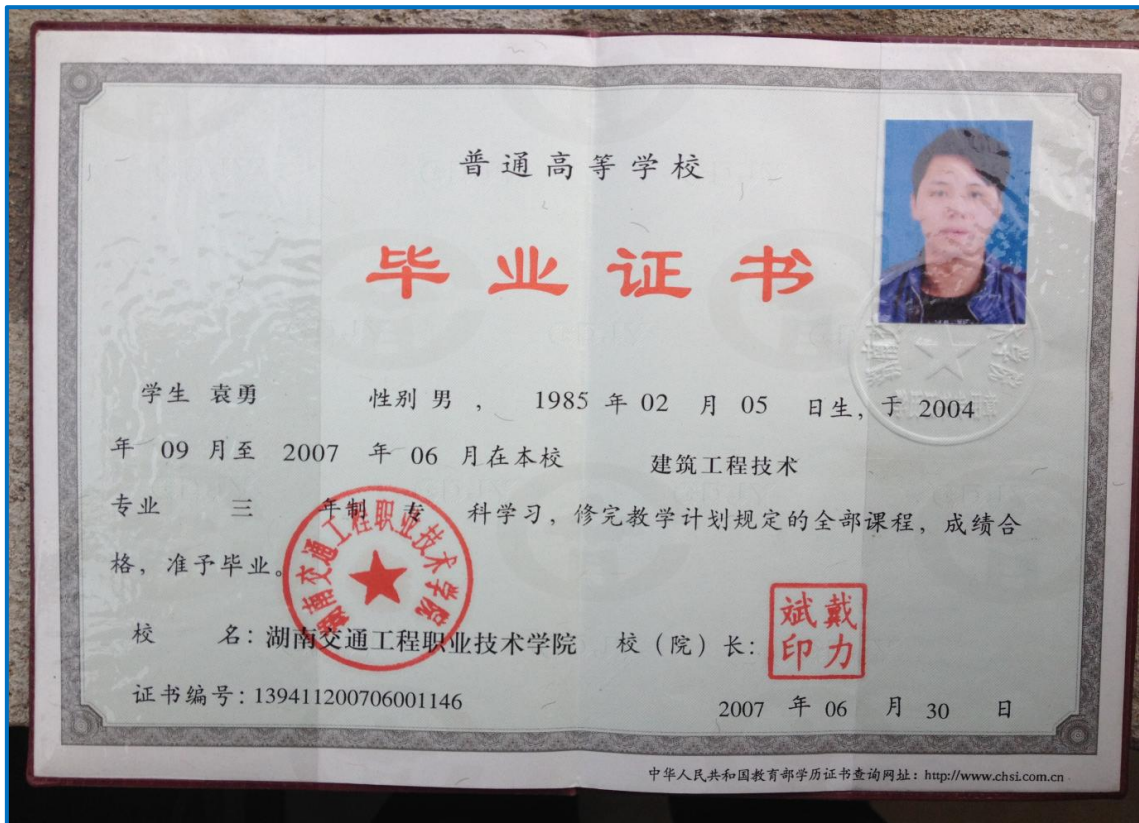 普通高等学校
毕业证书
学生 袁勇 性别 男 , 1985 年 02 月 05 日生, 于 2004
年 09 月至 2007 年 06 月在本校 建筑工程技术
专业 三 年制 专 科学习, 修完教学计划规定的全部课程, 成绩合
格, 准予毕业。
湖南交通工程职业技术学院
校 名: 湖南交通工程职业技术学院 校(院)长: 戴力斌印
证书编号: 139411200706001146
2007 年 06 月 30 日
中华人民共和国教育部学历证书查询网址: http://www.chsi.com.cn